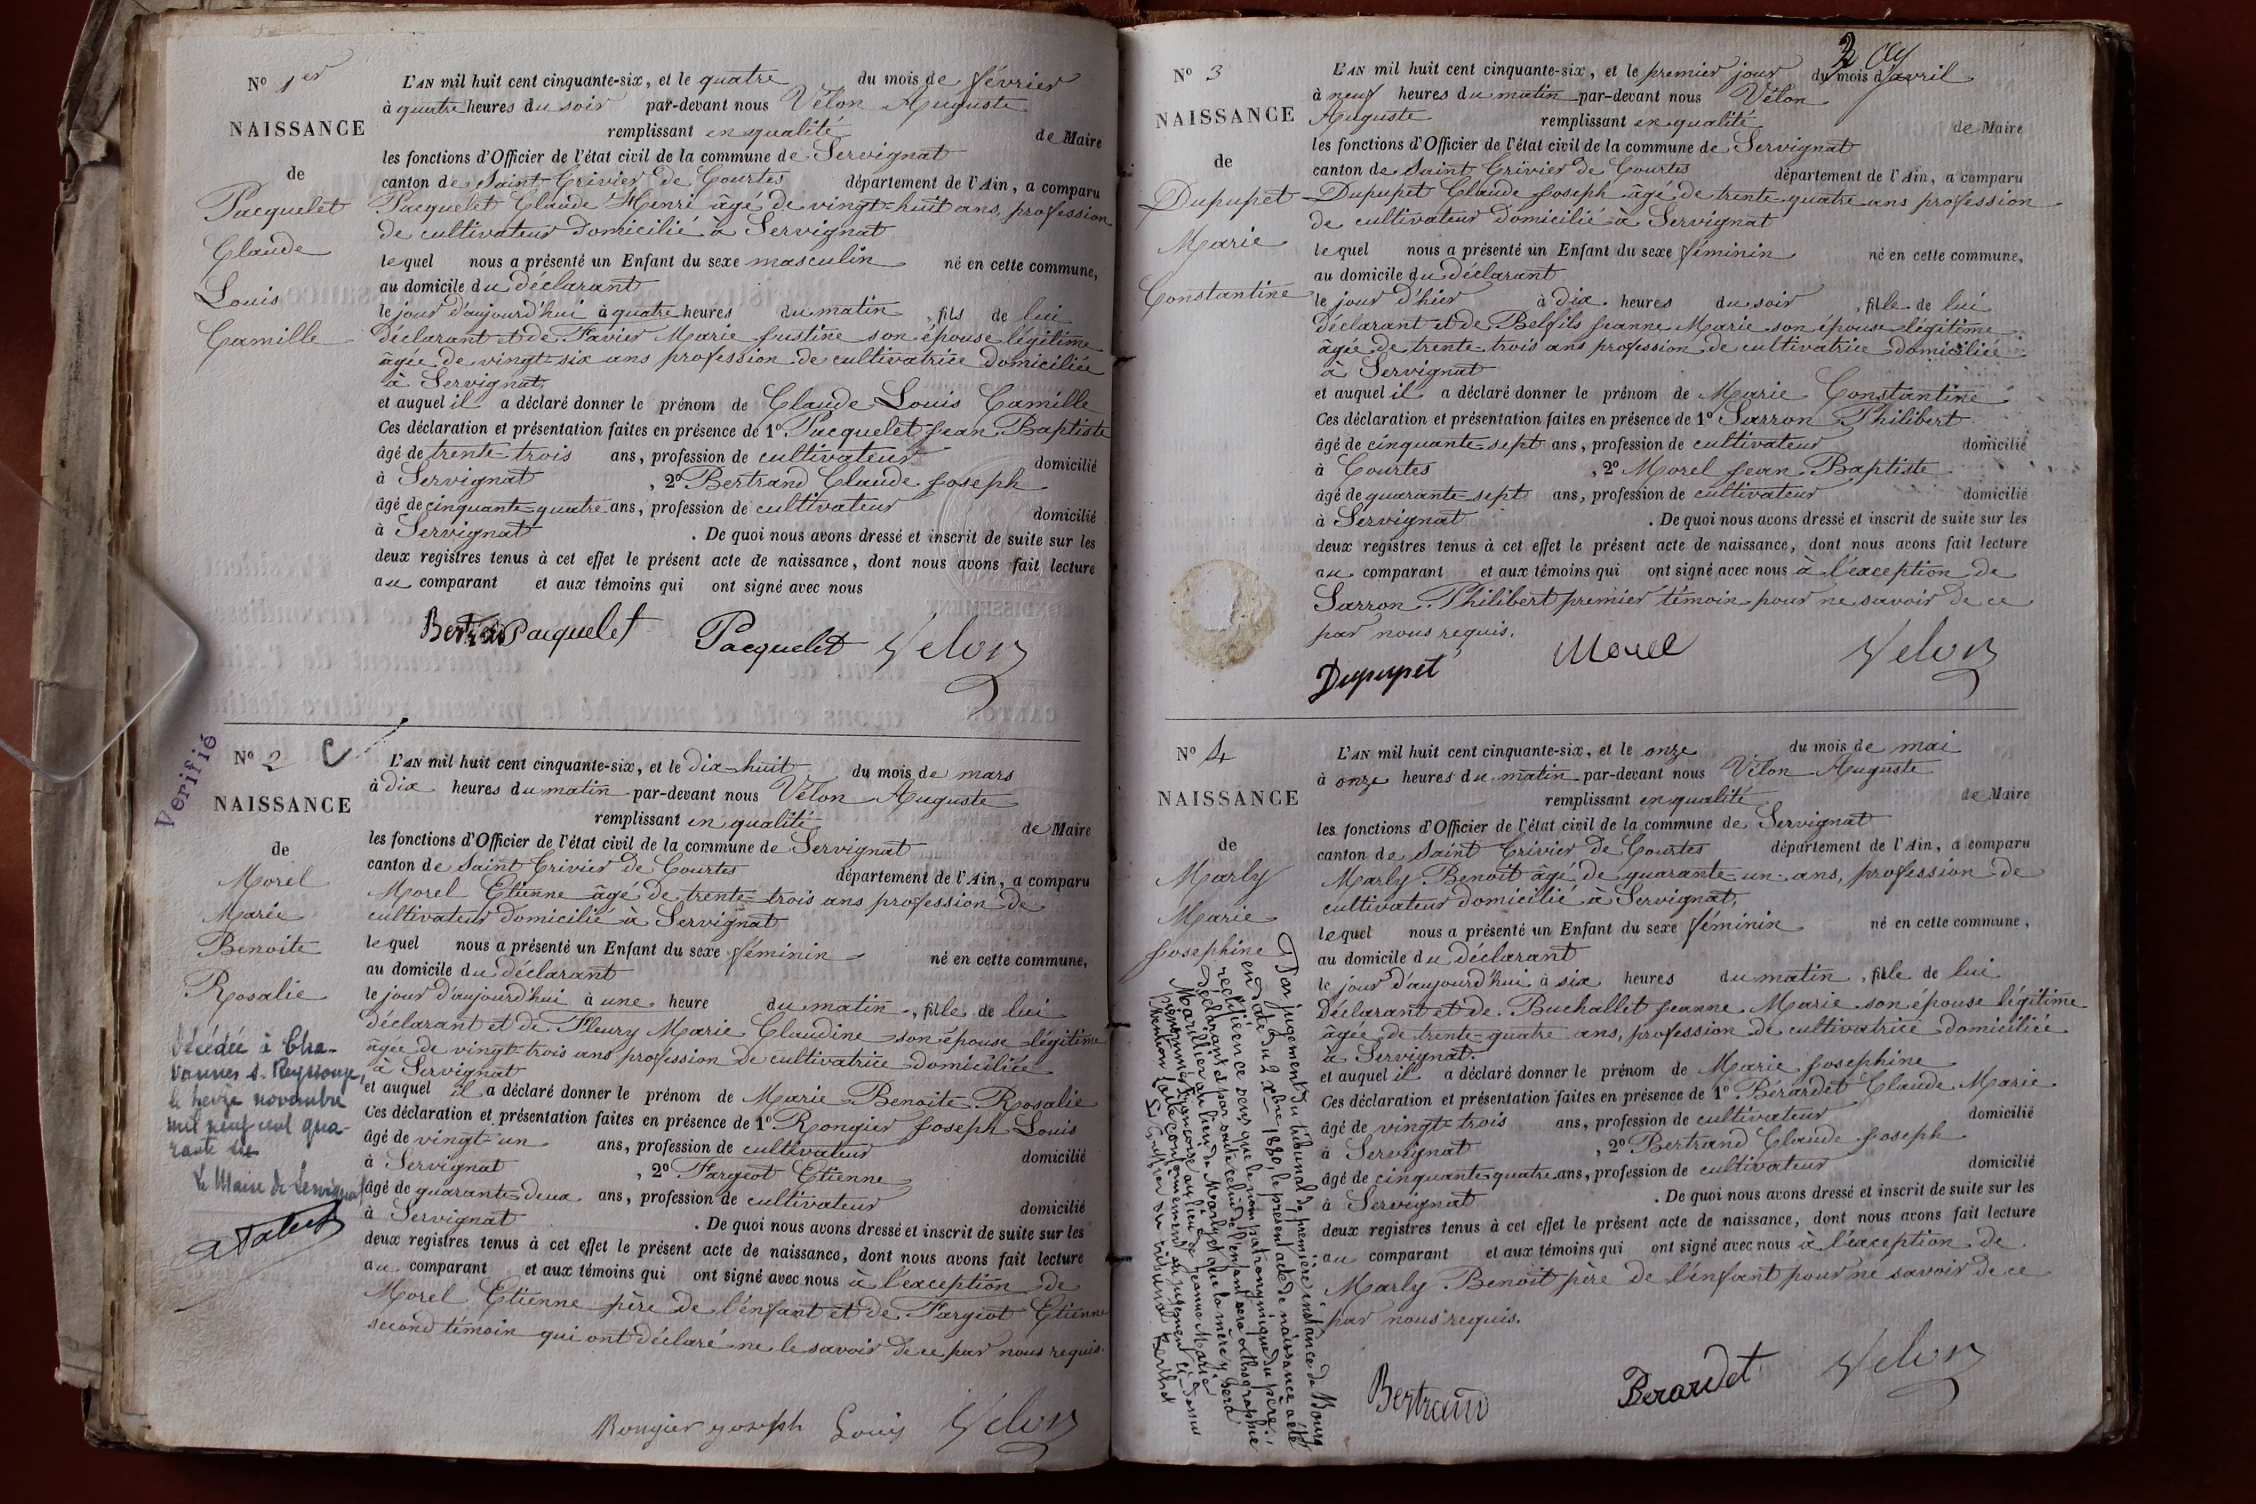 No 1er
NAISSANCE
de
Pacquelet
Claude
Louis
Camille
L'AN mil huit cent cinquante-six, et le quatre du mois de février
à quatre heures du soir par-devant nous Vélon Auguste
remplissant en qualité de Maire
les fonctions d'Officier de l'état civil de la commune de Servignat
canton de Saint Trivier de Courtes département de l'Ain, a comparu
Pacquelet Claude Henri âgé de vingt-huit ans, profession
de cultivateur domicilié à Servignat
lequel nous a présenté un Enfant du sexe masculin né en cette commune,
au domicile du déclarant
le jour d'aujourd'hui à quatre heures du matin, fils de lui
déclarant et de Favier Marie Justine son épouse légitime
âgée de vingt-six ans profession de cultivatrice domiciliée
à Servignat,
et auquel il a déclaré donner le prénom de Claude Louis Camille
Ces déclaration et présentation faites en présence de 1º Pacquelet Jean Baptiste
âgé de trente-trois ans, profession de cultivateur domicilié
à Servignat, 2º Bertrand Claude Joseph
âgé de cinquante-quatre ans, profession de cultivateur domicilié
à Servignat. De quoi nous avons dressé et inscrit de suite sur les
deux registres tenus à cet effet le présent acte de naissance, dont nous avons fait lecture
au comparant et aux témoins qui ont signé avec nous
Pacquelet Pacquelet Velon
Verifié
No 2
NAISSANCE
de
Morel
Marie
Benoite
Rosalie
Décédée à Cha-
vannes s. Reyssouze,
le treize novembre
mil neuf cent qua-
rante
Le Maire de Servignat
L'AN mil huit cent cinquante-six, et le dix-huit du mois de mars
à dix heures du matin par-devant nous Vélon Auguste
remplissant en qualité de Maire
les fonctions d'Officier de l'état civil de la commune de Servignat
canton de Saint Trivier de Courtes département de l'Ain, a comparu
Morel Etienne âgé de trente-trois ans profession de
cultivateur domicilié à Servignat
lequel nous a présenté un Enfant du sexe féminin né en cette commune,
au domicile du déclarant
le jour d'aujourd'hui à une heure du matin, fille de lui
déclarant et de Fleury Marie Claudine son épouse légitime
âgée de vingt-trois ans profession de cultivatrice domiciliée
à Servignat
et auquel il a déclaré donner le prénom de Marie Benoite Rosalie
Ces déclaration et présentation faites en présence de 1º Rongier Joseph Louis
âgé de vingt-un ans, profession de cultivateur domicilié
à Servignat, 2º Fargeot Etienne
âgé de quarante-deux ans, profession de cultivateur domicilié
à Servignat. De quoi nous avons dressé et inscrit de suite sur les
deux registres tenus à cet effet le présent acte de naissance, dont nous avons fait lecture
au comparant et aux témoins qui ont signé avec nous à l'exception de
Morel Etienne père de l'enfant et de Fargeot Etienne
second témoin qui ont déclaré ne le savoir de ce par nous requis.
Rongier joseph Louis Velon
No 3
NAISSANCE
de
Dupupet
Marie
Constantine
L'AN mil huit cent cinquante-six, et le premier jour du mois d'avril
à neuf heures du matin par-devant nous Vélon
Auguste remplissant en qualité de Maire
les fonctions d'Officier de l'état civil de la commune de Servignat
canton de Saint Trivier de Courtes département de l'Ain, a comparu
Dupupet Claude Joseph âgé de trente-quatre ans profession
de cultivateur domicilié à Servignat
lequel nous a présenté un Enfant du sexe féminin né en cette commune,
au domicile du déclarant
le jour d'hier à dix heures du soir, fille de lui
déclarant et de Belfils Jeanne Marie son épouse légitime
âgée de trente-trois ans profession de cultivatrice domiciliée
à Servignat
et auquel il a déclaré donner le prénom de Marie Constantine
Ces déclaration et présentation faites en présence de 1º Sarron Philibert
âgé de cinquante-sept ans, profession de cultivateur domicilié
à Courtes, 2º Morel Jean Baptiste
âgé de quarante-sept ans, profession de cultivateur domicilié
à Servignat. De quoi nous avons dressé et inscrit de suite sur les
deux registres tenus à cet effet le présent acte de naissance, dont nous avons fait lecture
au comparant et aux témoins qui ont signé avec nous à l'exception de
Sarron Philibert premier témoin pour ne savoir de ce
par nous requis.
Dupupet Morel Velon
No 4
NAISSANCE
de
Marly
Marie
Josephine
Par jugement du tribunal de première instance de Bourg
en date du 2 Xbre 1880, le présent acte de naissance a été
rectifié en ce sens que le nom patronymique du père,
déclarant et par suite celui de l'enfant sera orthographié
Marillier au lieu de Marly et que la mère y sera
prénommée au lieu de Jeanne Marie
Mention faite conformément au jugement ci-dessus
L'AN mil huit cent cinquante-six, et le onze du mois de mai
à onze heures du matin par-devant nous Vélon Auguste
remplissant en qualité de Maire
les fonctions d'Officier de l'état civil de la commune de Servignat
canton de Saint Trivier de Courtes département de l'Ain, a comparu
Marly Benoit âgé de quarante-un ans, profession de
cultivateur domicilié à Servignat,
lequel nous a présenté un Enfant du sexe féminin né en cette commune,
au domicile du déclarant
le jour d'aujourd'hui à six heures du matin, fille de lui
déclarant et de Buchallet Jeanne Marie son épouse légitime
âgée de trente-quatre ans, profession de cultivatrice domiciliée
à Servignat.
et auquel il a déclaré donner le prénom de Marie Josephine
Ces déclaration et présentation faites en présence de 1º Bérardet Claude Marie
âgé de vingt-trois ans, profession de cultivateur domicilié
à Servignat, 2º Bertrand Claude Joseph
âgé de cinquante-quatre ans, profession de cultivateur domicilié
à Servignat. De quoi nous avons dressé et inscrit de suite sur les
deux registres tenus à cet effet le présent acte de naissance, dont nous avons fait lecture
au comparant et aux témoins qui ont signé avec nous à l'exception de
Marly Benoit père de l'enfant pour ne savoir de ce
par nous requis.
Bertrand Berardet Velon